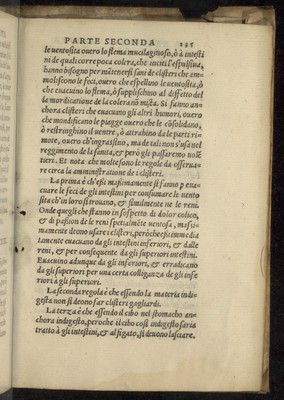 PARTE SECONDA 195
le uentosita ouero lo flema mucilaginoso, ò à intesti
ni de quali corre poca colera, che inciti l'espulsiua,
hanno bisogno per mãtenersi sani de clisteri che am-
molliscono le feci, ouero che espellono le uentosità, ò
che euacuino lo flema, ò supplischino al diffetto del
la mordicatione de la colera nõ mista. Si fanno an-
chora clisteri che euacuano gli altri humori, ouero
che mondificano le piagge ouero che le cõsolidano,
ò restringhino il uentre, ò attrahino da le parti ri-
mote, ouero ch'ingrassino, ma de tali non s'usa nel
reggimento de la sanita, & però gli passaremo uolẽ
tieri. Et nota che molte sono le regole da osseruare
circa la amministratione de i clisteri.
La prima è ch'essi massimamente si fanno p eua
cuare le feci de gli intestini per consumare le uento
sita ch'in loro si trouano, & similmente ne le reni.
Onde quegli che stanno in sospetto di dolor colico,
& di passion de le reni spetialmẽte uentosa, massi-
mamente deono usare i clisteri, peròche essi immedia
tamente euacuano da gli intestini inferiori, & dalle
reni, & per consequente da gli superiori intestini.
Euacuino adunque da gli inferiori, & erradicano
da gli superiori per una certa colliganza de gli infe
riori à gli superiori.
La seconda regola è che essendo la materia indi-
gesta non si deono far clisteri gagliardi.
La terza è che essendo il cibo nel stomacho an-
chora indigesto, peroche il cibo così indigesto saria
tratto à gli intestini, & al figato, si deuono lasciare.